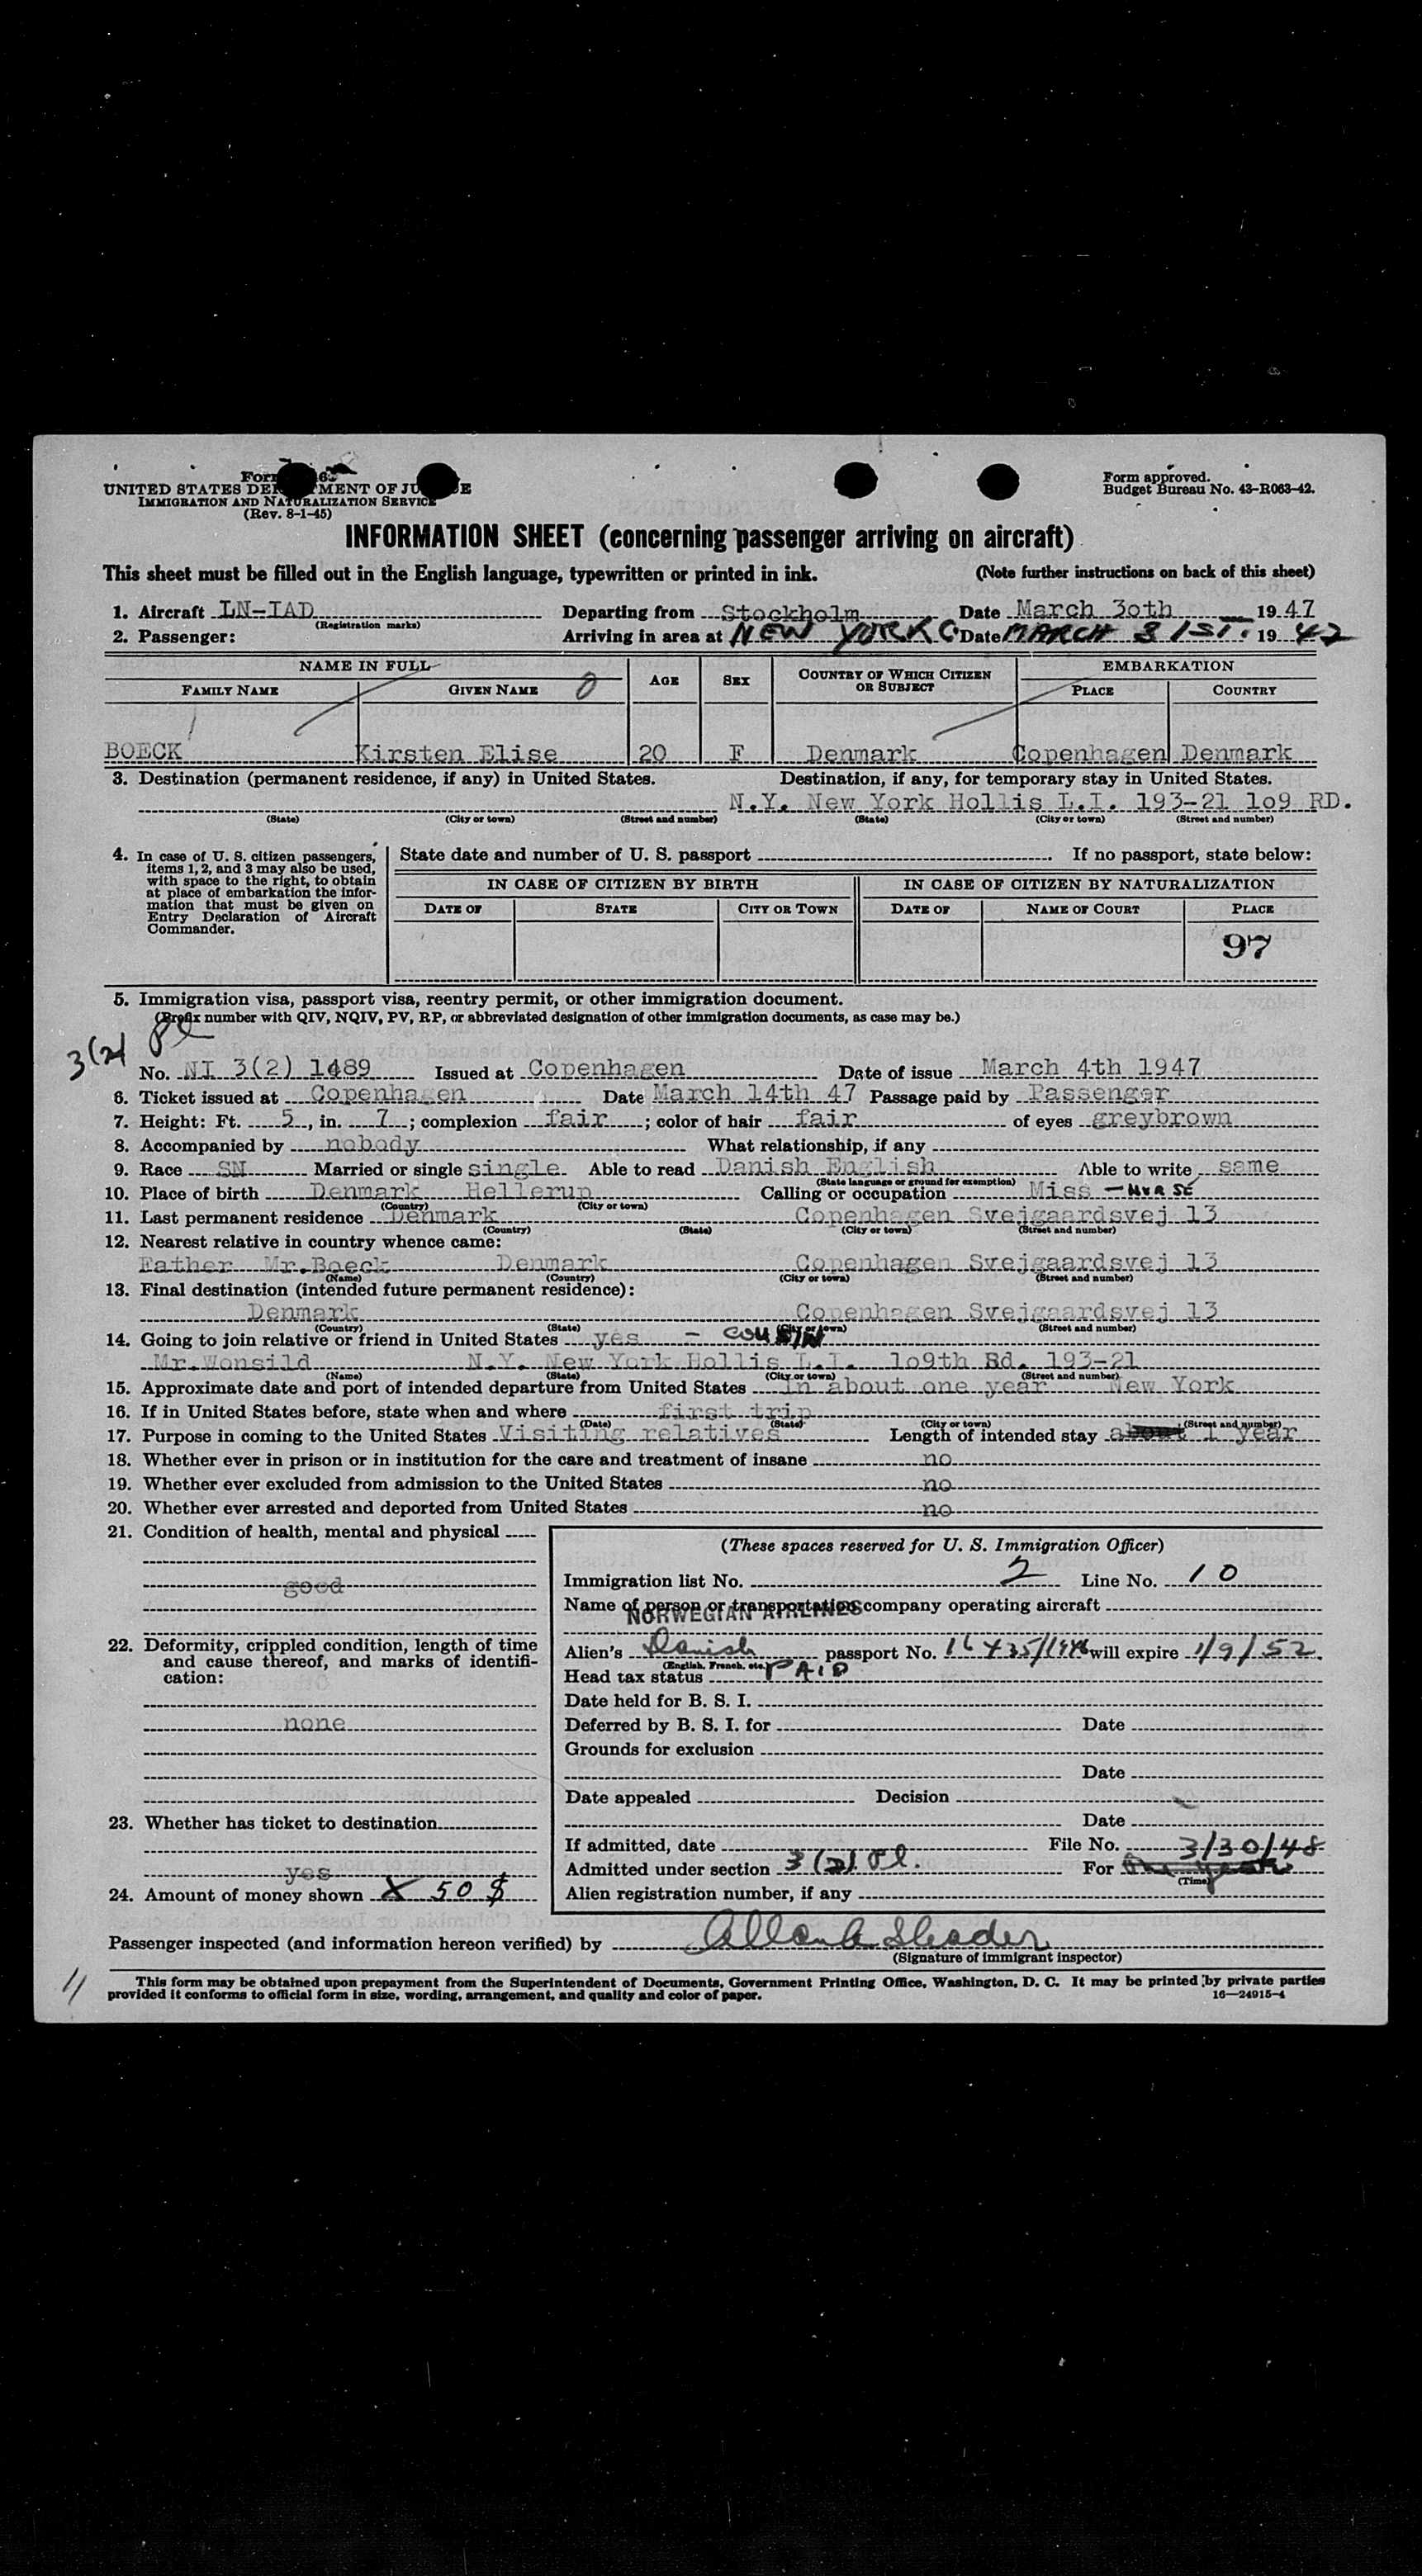 UNITED STATES DE MENT OF JU E
IMMIGRATION AND NATURALIZATION SERVICE
(Rev. 8-1-45)
Form approved.
Budget Bureau No. 43-R063-42.
INFORMATION SHEET (concerning passenger arriving on aircraft)
This sheet must be filled out in the English language, typewritten or printed in ink. (Note further instructions on back of this sheet)
1. Aircraft LN-IAD Departing from Stockholm Date March 3oth 1947
(Registration marks)
2. Passenger: Arriving in area at NEW YORK C. Date MARCH 31ST. 1947
NAME IN FULL AGE SEX COUNTRY OF WHICH CITIZEN OR SUBJECT EMBARKATION
FAMILY NAME GIVEN NAME PLACE COUNTRY
BOECK Kirsten Elise 20 F Denmark Copenhagen Denmark
3. Destination (permanent residence, if any) in United States. Destination, if any, for temporary stay in United States.
N.Y. New York Hollis L.I. 193-21 lo9 RD.
(State) (City or town) (Street and number) (State) (City or town) (Street and number)
4. In case of U. S. citizen passengers, items 1, 2, and 3 may also be used, with space to the right, to obtain at place of embarkation the information that must be given on Entry Declaration of Aircraft Commander.
State date and number of U. S. passport If no passport, state below:
IN CASE OF CITIZEN BY BIRTH IN CASE OF CITIZEN BY NATURALIZATION
DATE OF STATE CITY OR TOWN DATE OF NAME OF COURT PLACE
97
5. Immigration visa, passport visa, reentry permit, or other immigration document.
(Prefix number with QIV, NQIV, PV, RP, or abbreviated designation of other immigration documents, as case may be.)
3(2) Pl
No. NI 3(2) 1489 Issued at Copenhagen Date of issue March 4th 1947
6. Ticket issued at Copenhagen Date March 14th 47 Passage paid by Passenger
7. Height: Ft. 5, in. 7; complexion fair; color of hair fair of eyes greybrown
8. Accompanied by nobody What relationship, if any
9. Race SN Married or single single Able to read Danish English Able to write same
(State language or ground for exemption)
10. Place of birth Denmark Hellerup Calling or occupation Miss - NURSE
(Country) (City or town)
11. Last permanent residence Denmark Copenhagen Svejgaardsvej 13
(Country) (State) (City or town) (Street and number)
12. Nearest relative in country whence came:
Father Mr.Boeck Denmark Copenhagen Svejgaardsvej 13
(Name) (Country) (City or town) (Street and number)
13. Final destination (intended future permanent residence):
Denmark Copenhagen Svejgaardsvej 13
(Country) (State) (City or town) (Street and number)
14. Going to join relative or friend in United States yes - COUSIN
Mr.Wonsild N.Y. New York Hollis L.I. lo9th Rd. 193-21
(Name) (State) (City or town) (Street and number)
15. Approximate date and port of intended departure from United States in about one year New York
16. If in United States before, state when and where first trip
(Date) (State) (City or town) (Street and number)
17. Purpose in coming to the United States Visiting relatives Length of intended stay about 1 year
18. Whether ever in prison or in institution for the care and treatment of insane no
19. Whether ever excluded from admission to the United States no
20. Whether ever arrested and deported from United States no
21. Condition of health, mental and physical
good
22. Deformity, crippled condition, length of time and cause thereof, and marks of identification:
none
23. Whether has ticket to destination
yes
24. Amount of money shown X 50 $
(These spaces reserved for U. S. Immigration Officer)
Immigration list No. 2 Line No. 10
Name of person or transportation company operating aircraft
NORWEGIAN AIRLINES
Alien's Danish passport No. will expire 1/9/52.
(English, French, etc.)
Head tax status PAID
Date held for B. S. I.
Deferred by B. S. I. for Date
Grounds for exclusion
Date
Date appealed Decision
Date
If admitted, date File No. 3/30/48
Admitted under section 3(2) Pl. For One year
(Time)
Alien registration number, if any
Passenger inspected (and information hereon verified) by
(Signature of immigrant inspector)
11
This form may be obtained upon prepayment from the Superintendent of Documents, Government Printing Office, Washington, D. C. It may be printed by private parties
provided it conforms to official form in size, wording, arrangement, and quality and color of paper. 16—24915-4